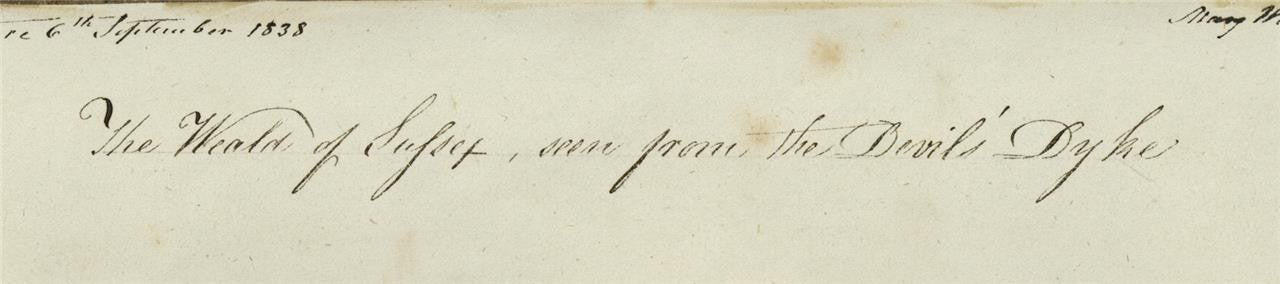 6th September 1838 Mary
The Weald of Sussex, seen from the Devils' Dyke